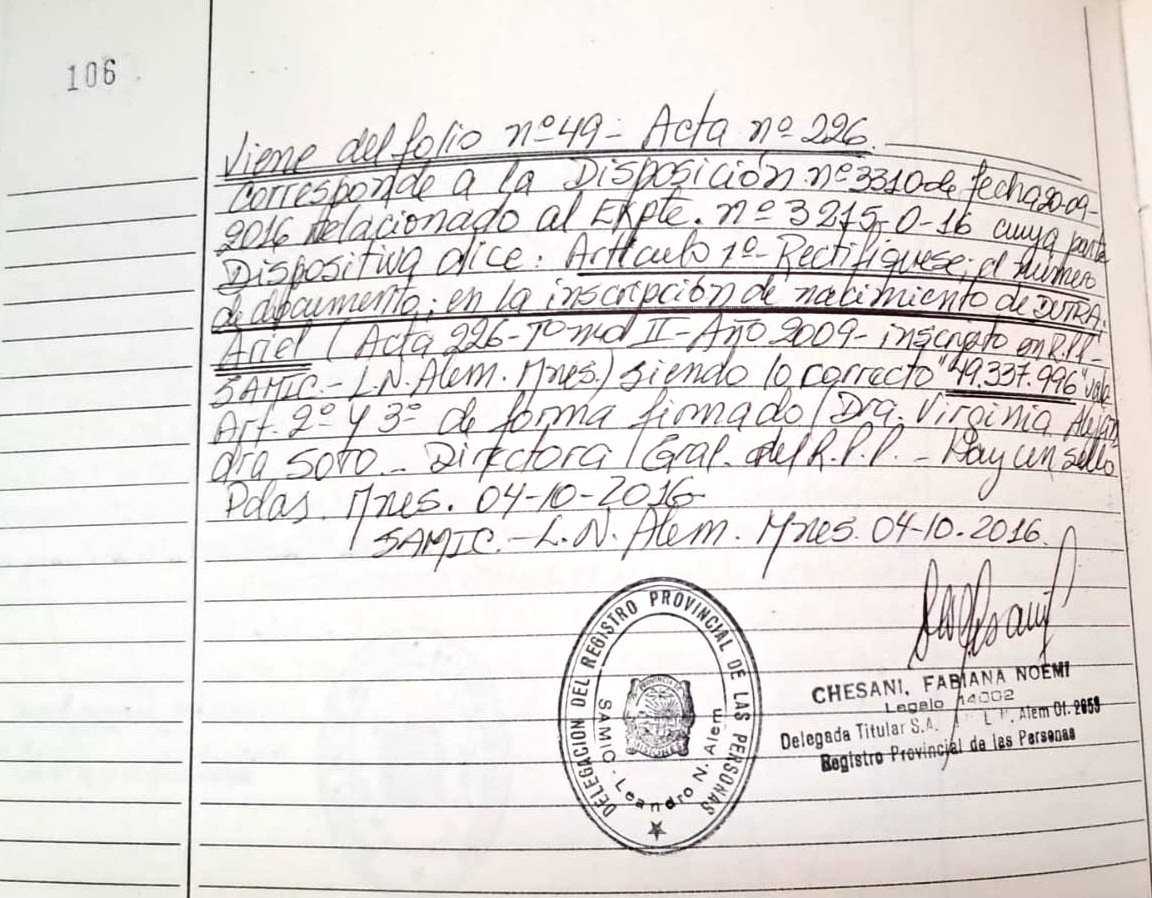 106
Viene del folio nº 49- Acta nº 226.
Corresponde a la Disposición nº 3310 de fecha 20-09-
2016 Relacionado al EXpte. nº 3215-0-16 cuya parte
Dispositiva dice: Artículo 1º- Rectifíquese; el número
de documento; en la inscripción de nacimiento de DUTRA,
Ariel (Acta 226- Tomo II- Año 2009- inscripto en R.P.P.-
SAMIC.- L.N. Alem. Mnes.) siendo lo correcto "49.337.996" vale
Art. 2º y 3º de forma firmado Dra. Virginia Alejan
dra SOTO - Directora Gral. del R.P.P. - Hay un sello
Pdas. Mnes. 04-10-2016-
SAMIC.- L.N. Alem. Mnes. 04-10-2016.
DELEGACION DEL REGISTRO PROVINCIAL DE LAS PERSONAS
SAMIC - Leandro N. Alem
CHESANI, FABIANA NOEMI
Legajo 14002
Delegada Titular S.A. L. N. Alem Of. 2053
Registro Provincial de las Personas